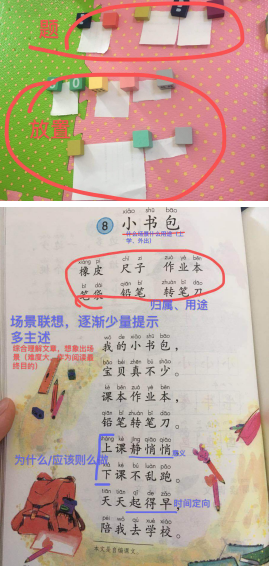 题
放置
xiǎo shū bāo
8 小书包
什么场景什么用途（上学、外出）
xiàng pí chǐ zi zuò yè běn
橡皮 尺子 作业本
bǐ dài qiān bǐ zhuàn bǐ dāo
笔袋 铅笔 转笔刀
归属、用途
场景联想，逐渐少量提示
多主述
综合理解文章，想象出场景（难度大，作为阅读最终目的）
wǒ de xiǎo shū bāo
我的小书包，
bǎo bèi zhēn bù shǎo
宝贝真不少。
kè běn zuò yè běn
课本作业本，
qiān bǐ zhuàn bǐ dāo
铅笔转笔刀。
shàng kè jìng qiāo qiāo
上课静悄悄，
意义
为什么/应该则么做
xià kè bù luàn pǎo
下课不乱跑。
tiān tiān qǐ de zǎo
天天起得早，
时间定向
péi wǒ qù xué xiào
陪我去学校。
本文是首编课文。